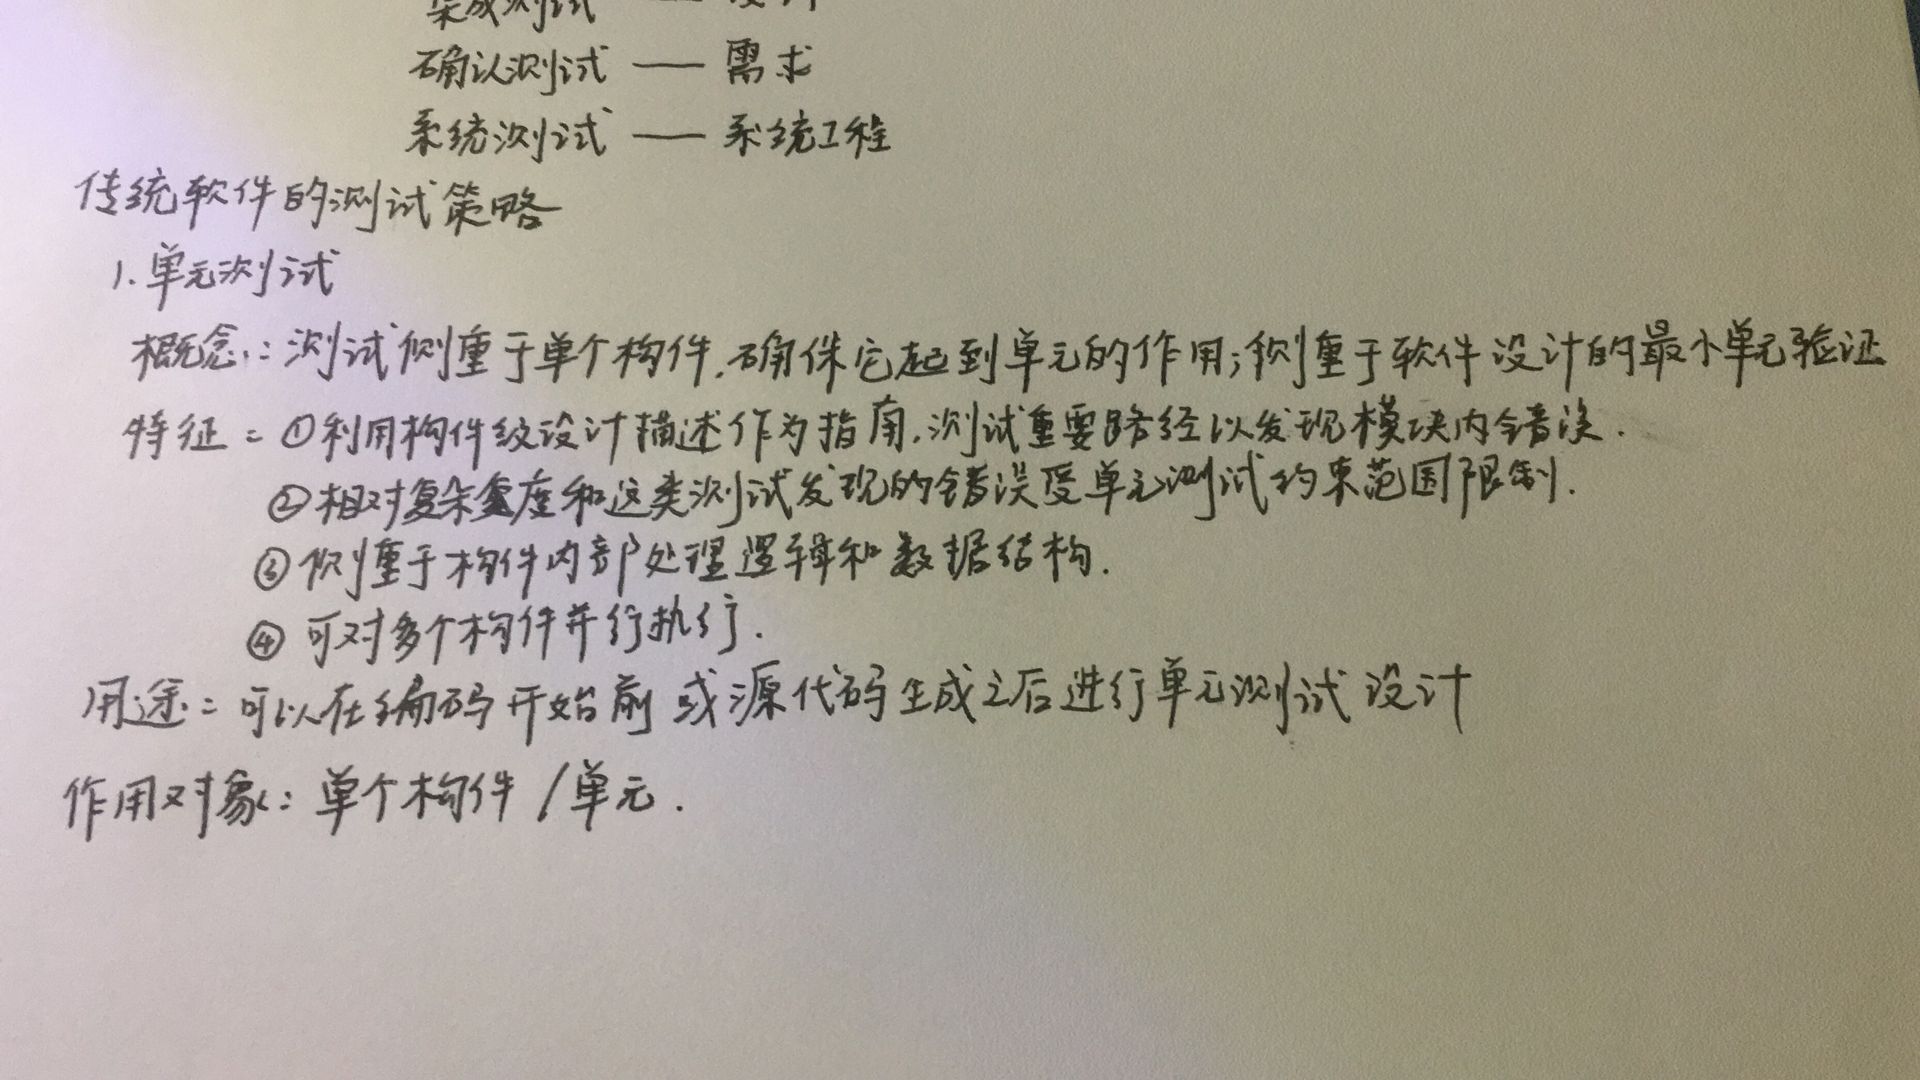 集成测试 —— 设计
确认测试 —— 需求
系统测试 —— 系统工程
传统软件的测试策略
1. 单元测试
概念：测试侧重于单个构件，确保它起到单元的作用；侧重于软件设计的最小单元验证
特征：①利用构件级设计描述作为指南，测试重要路径以发现模块内错误．
②相对复杂度和这类测试发现的错误受单元测试约束范围限制．
③侧重于构件内部处理逻辑和数据结构．
④可对多个构件并行执行．
用途：可以在编码开始前或源代码生成之后进行单元测试设计
作用对象：单个构件/单元．